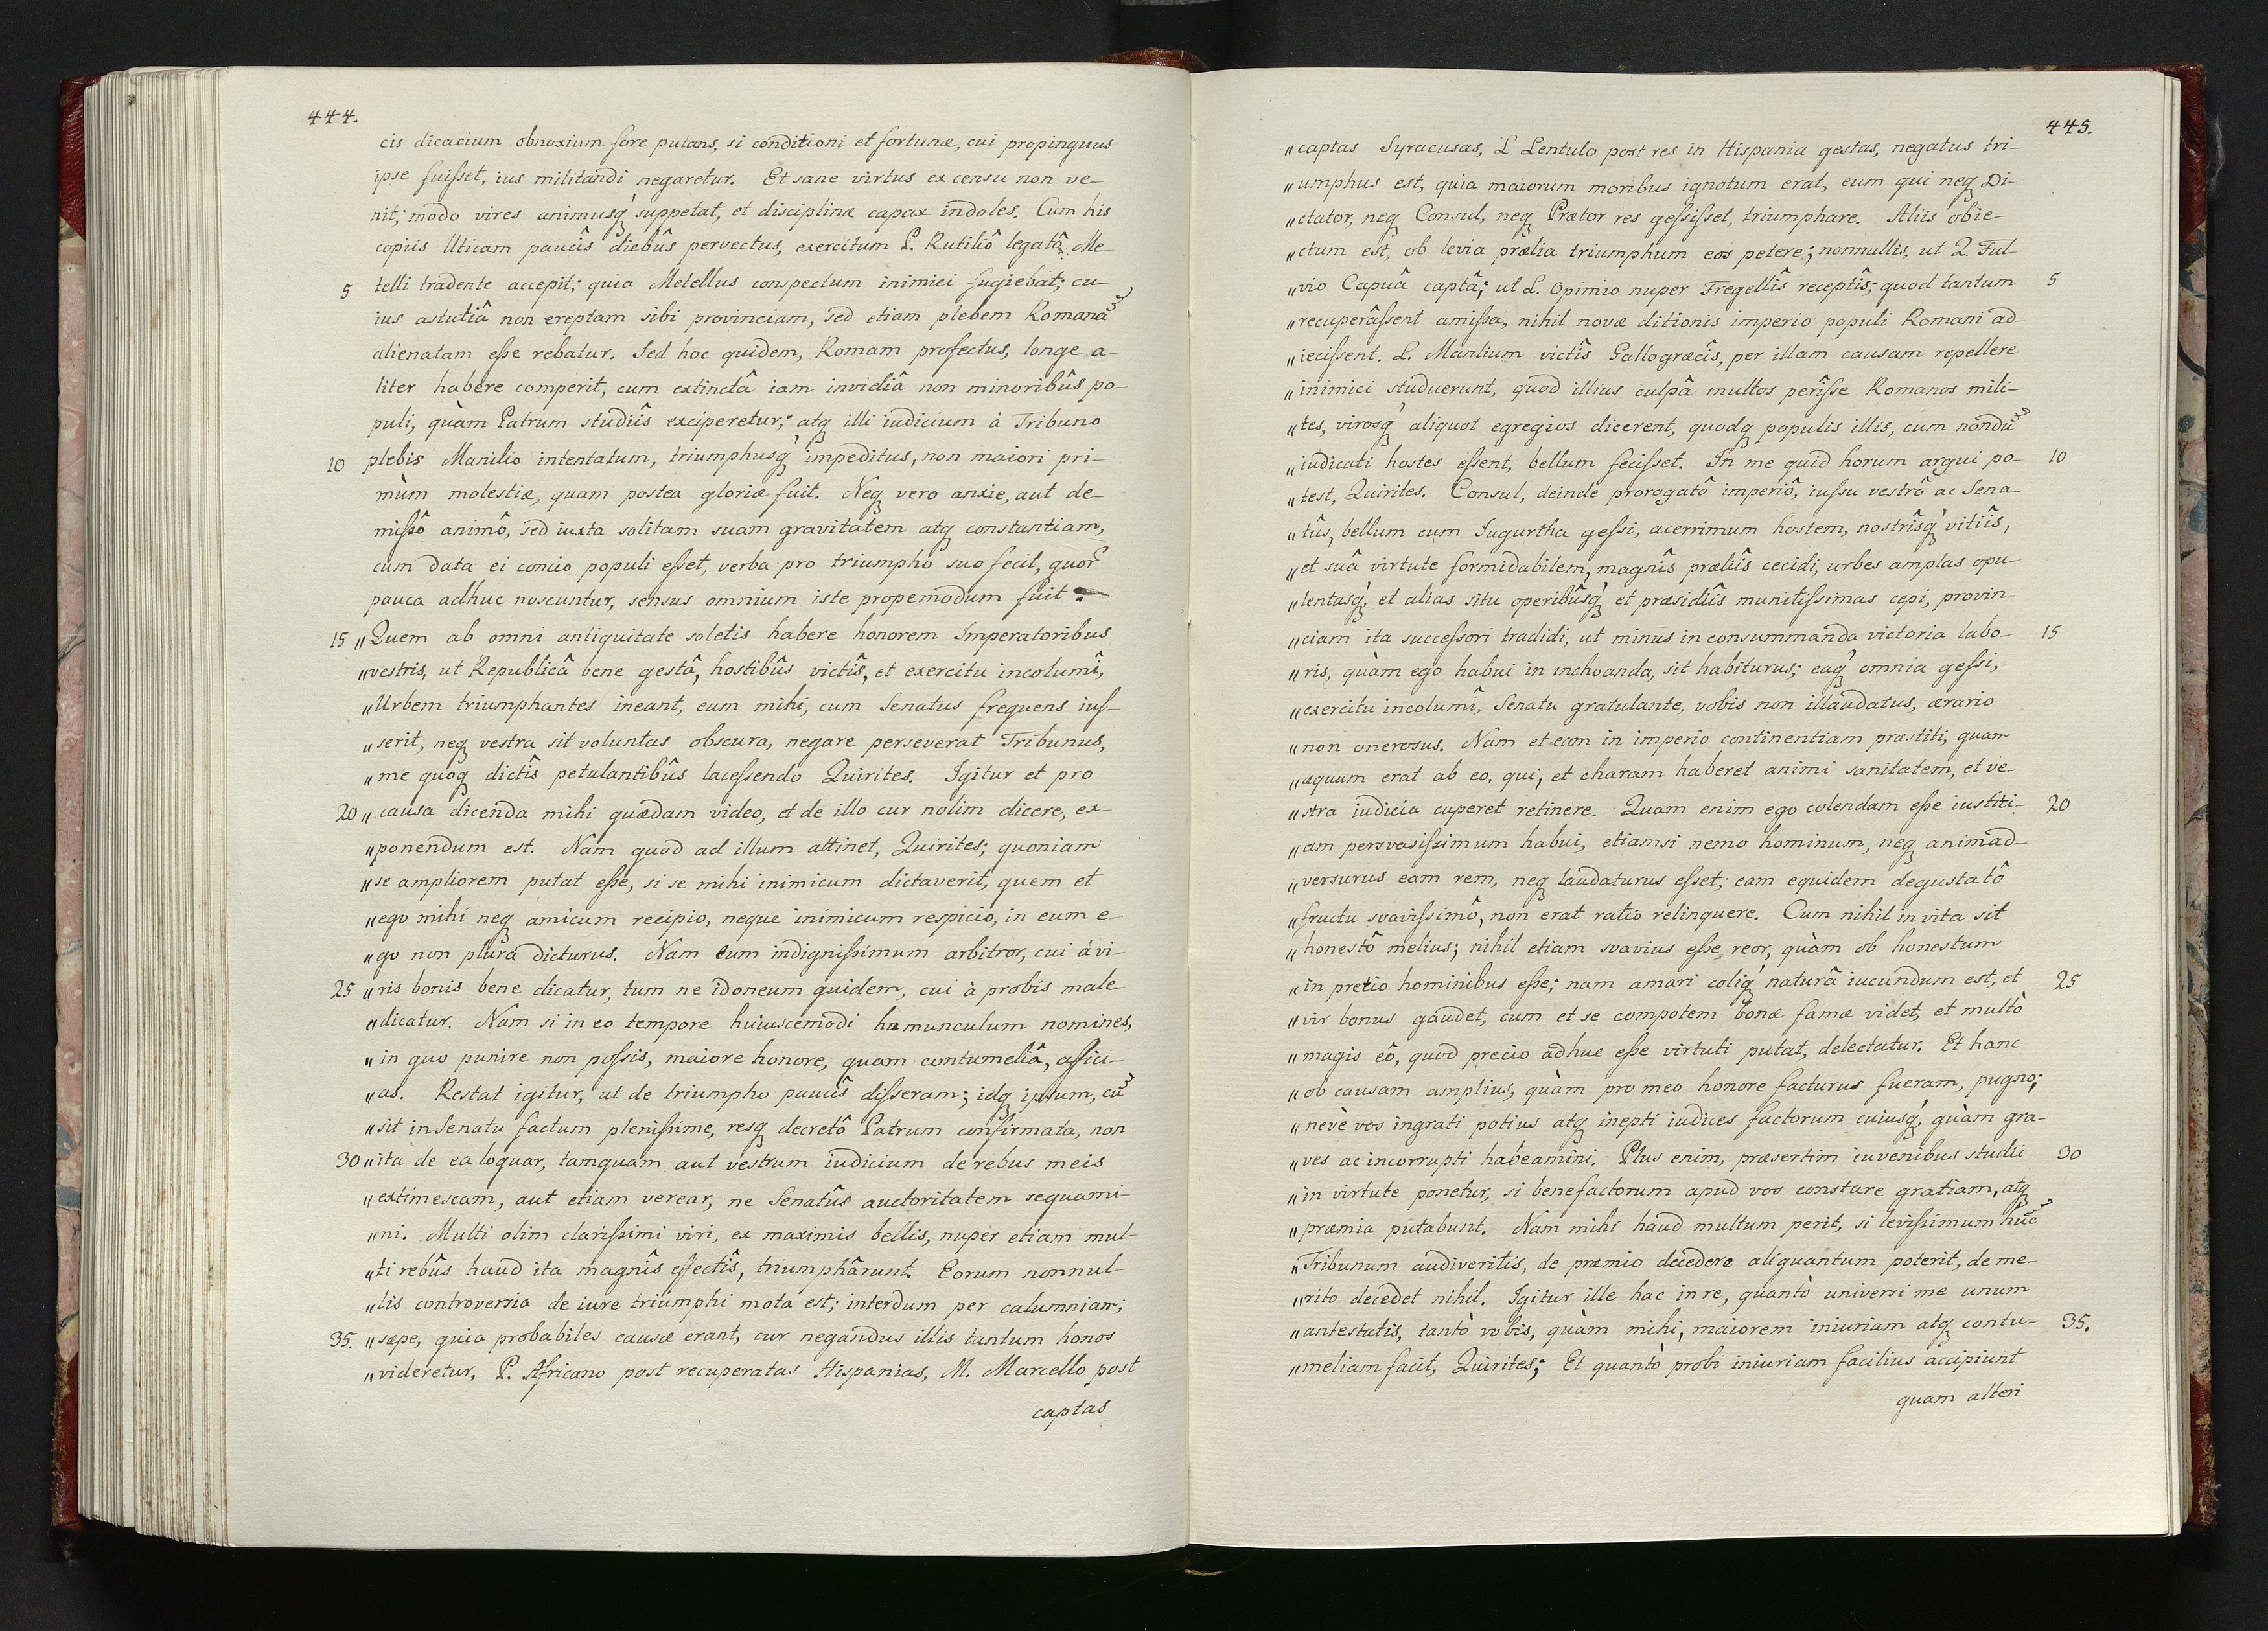 444.
cis dicacium obnoxium fore putans, si conditioni et fortunæ, cui propinquus
ipse fuiſset, ius militandi negaretur. Et sane virtus ex censu non ve-
nit; modo vires animusq́ suppetat, et disciplinæ capax indoles. Cum his
copiis Uticam paucîs diebûs pervectus, exercitum P. Rutiliô legatô Me-
5 telli tradente accepit; quia Metellus conspectum inimici fugiebat; cu-
ius astutiâ non ereptam sibi provinciam, sed etiam plebem Romanã
alienatam eſse rebatur. Sed hoc quidem, Romam profectus, longe a-
liter habere comperit, cum extinctâ iam invidiâ non minoribûs po-
puli, quàm Patrum studiîs exciperetur; atq illi iudicium à Tribuno
10 plebis Manilio intentatum, triumphusq́ impeditus, non maiori pri-
mùm molestiæ, quam postea gloriæ fuit. Neq vero anxie, aut de-
miſsô animô, sed iuxta solitam suam gravitatem atq constantiam,
cum data ei concio populi eſset, verba pro triumpho suo fecit, quoꝝ
pauca adhuc noscuntur, sensus omnium iste propemodum fuit.
15 „Quem ab omni antiquitate soletis habere honorem Imperatoribus
„vestris, ut Republicâ bene gestâ, hostibûs victîs, et exercitu incolumî,
„Urbem triumphantes ineant, eum mihi, cum Senatus frequens iuſ-
„serit, neq vestra sit voluntas obscura, negare perseverat Tribunus,
„me quoq dictîs petulantibûs laceſsendo Quirites. Igitur et pro
20 „causa dicenda mihi quædam video, et de illo cur nolim dicere, ex-
„ponendum est. Nam quod ad illum attinet, Quirites; quoniam
„se ampliorem putat eſse, si se mihi inimicum dictaverit, quem et
„ego mihi neq amicum recipio, neque inimicum respicio, in eum e-
„go non plura dicturus. Nam eum indigniſsimum arbitror, cui à vi-
25 „ris bonis bene dicatur, tum ne idoneum quidem, cui à probis male
„dicatur. Nam si in eo tempore huiuscemodi homunculum nomines,
„in quo punire non poſsis, maiore honore, quam contumeliâ, affici-
„as. Restat igitur, ut de triumpho paucîs diſseram; idq ipsum, cũ
„sit in Senatu factum pleniſsime, resq decretô Patrum confirmata, non
30 „ita de ea loquar, tamquam aut vestrum iudicium de rebus meis
„extimescam, aut etiam verear, ne Senatûs auctoritatem sequami-
„ni. Multi olim clariſsimi viri, ex maximis bellis, nuper etiam mul-
„ti rebûs haud ita magnîs effectîs, triumphârunt. Eorum nonnul-
„lis controversia de iure triumphi mota est; interdum per calumniam;
35. „sæpe, quia probabiles causæ erant, cur negandus illis tantum honos
„videretur, P. Africano post recuperatas Hispanias, M. Marcello post
captas
445.
„captas Syracusas, L Lentulo post res in Hispania gestas, negatus tri-
„umphus est, quia maiorum moribus ignotum erat, eum qui neq Di-
„ctator, neq Consul, neq Prætor res geſsiſset, triumphare. Aliis obie-
„ctum est, ob levia prælia triumphum eos petere; nonnullis, ut Q. Ful
„vio Capuâ captâ; ut L. Opimio nuper Fregellîs receptîs; quod tantum 5
„recuperâſsent amiſsa, nihil novæ ditionis imperio populi Romani ad-
„ieciſsent. L. Manlium victîs Gallogræcîs, per illam causam repellere
„inimici studuerunt, quod illius culpâ multos perîſse Romanos mili-
„tes, virosq́ aliquot egregios dicerent, quodq populis illis, cum nondũ
„iudicati hostes eſsent, bellum feciſset. In me quid horum argui po- 10
„test, Quirites. Consul, deinde prorogatô imperiô, iuſsu vestrô ac Sena-
„tûs, bellum cum Iugurtha geſsi, acerrimum hostem, nostrîsq́ vitiîs,
„et suâ virtute formidabilem, magnîs præliîs cecidi, urbes amplas opu-
„lentasq́, et alias situ operibûsq́ et præsidiîs munitiſsimas cepi, provin-
„ciam ita succeſsori tradidi, ut minus in consummanda victoria labo- 15
„ris, quàm ego habui in inchoanda, sit habiturus; eaq́ omnia geſsi,
„exercitu incolumî, Senatu gratulante, vobis non illaudatus, ærario
„non onerosus. Nam et eam in imperio continentiam præstiti, quam
„æquum erat ab eo, qui, et charam haberet animi sanitatem, et ve-
„stra iudicia cuperet retinere. Quam enim ego colendam eſse iustiti- 20
„am persvasiſsimum habui, etiamsi nemo hominum, neq animad-
„versurus eam rem, neq laudaturus eſset; eam equidem degustatô
„fructu svaviſsimô, non erat ratio relinquere. Cum nihil in vita sit
„honestô melius; nihil etiam svavius eſse reor, quàm ob honestum
„in pretio hominibus eſse; nam amari coliq́ naturâ iucundum est, et 25
„vir bonus gaudet, cum et se compotem bonæ famæ videt, et multò
„magis eô, quod precio adhuc eſse virtuti putat, delectatur. Et hanc
„ob causam amplius, quàm pro meo honore facturus fueram, pugno;
„nevè vos ingrati potius atq inepti iudices factorum cuiusq́, quàm gra-
„ves ac incorrupti habeamini. Plus enim, præsertim iuvenibus studii 30
„in virtute ponetur, si benefactorum apud vos constare gratiam, atq
„præmia putabunt. Nam mihi haud multum perit, si leviſsimum hũc
„Tribunum audiveritis, de præmio decedere aliquantum poterit, de me-
„rito decedet nihil. Igitur ille hac in re, quantò universi me unum
„antestatis, tantò vobis, quàm mihi, maiorem iniuriam atq contu- 35.
„meliam facit, Quirites; Et quantò probi iniuriam facilius accipiunt
quam alteri